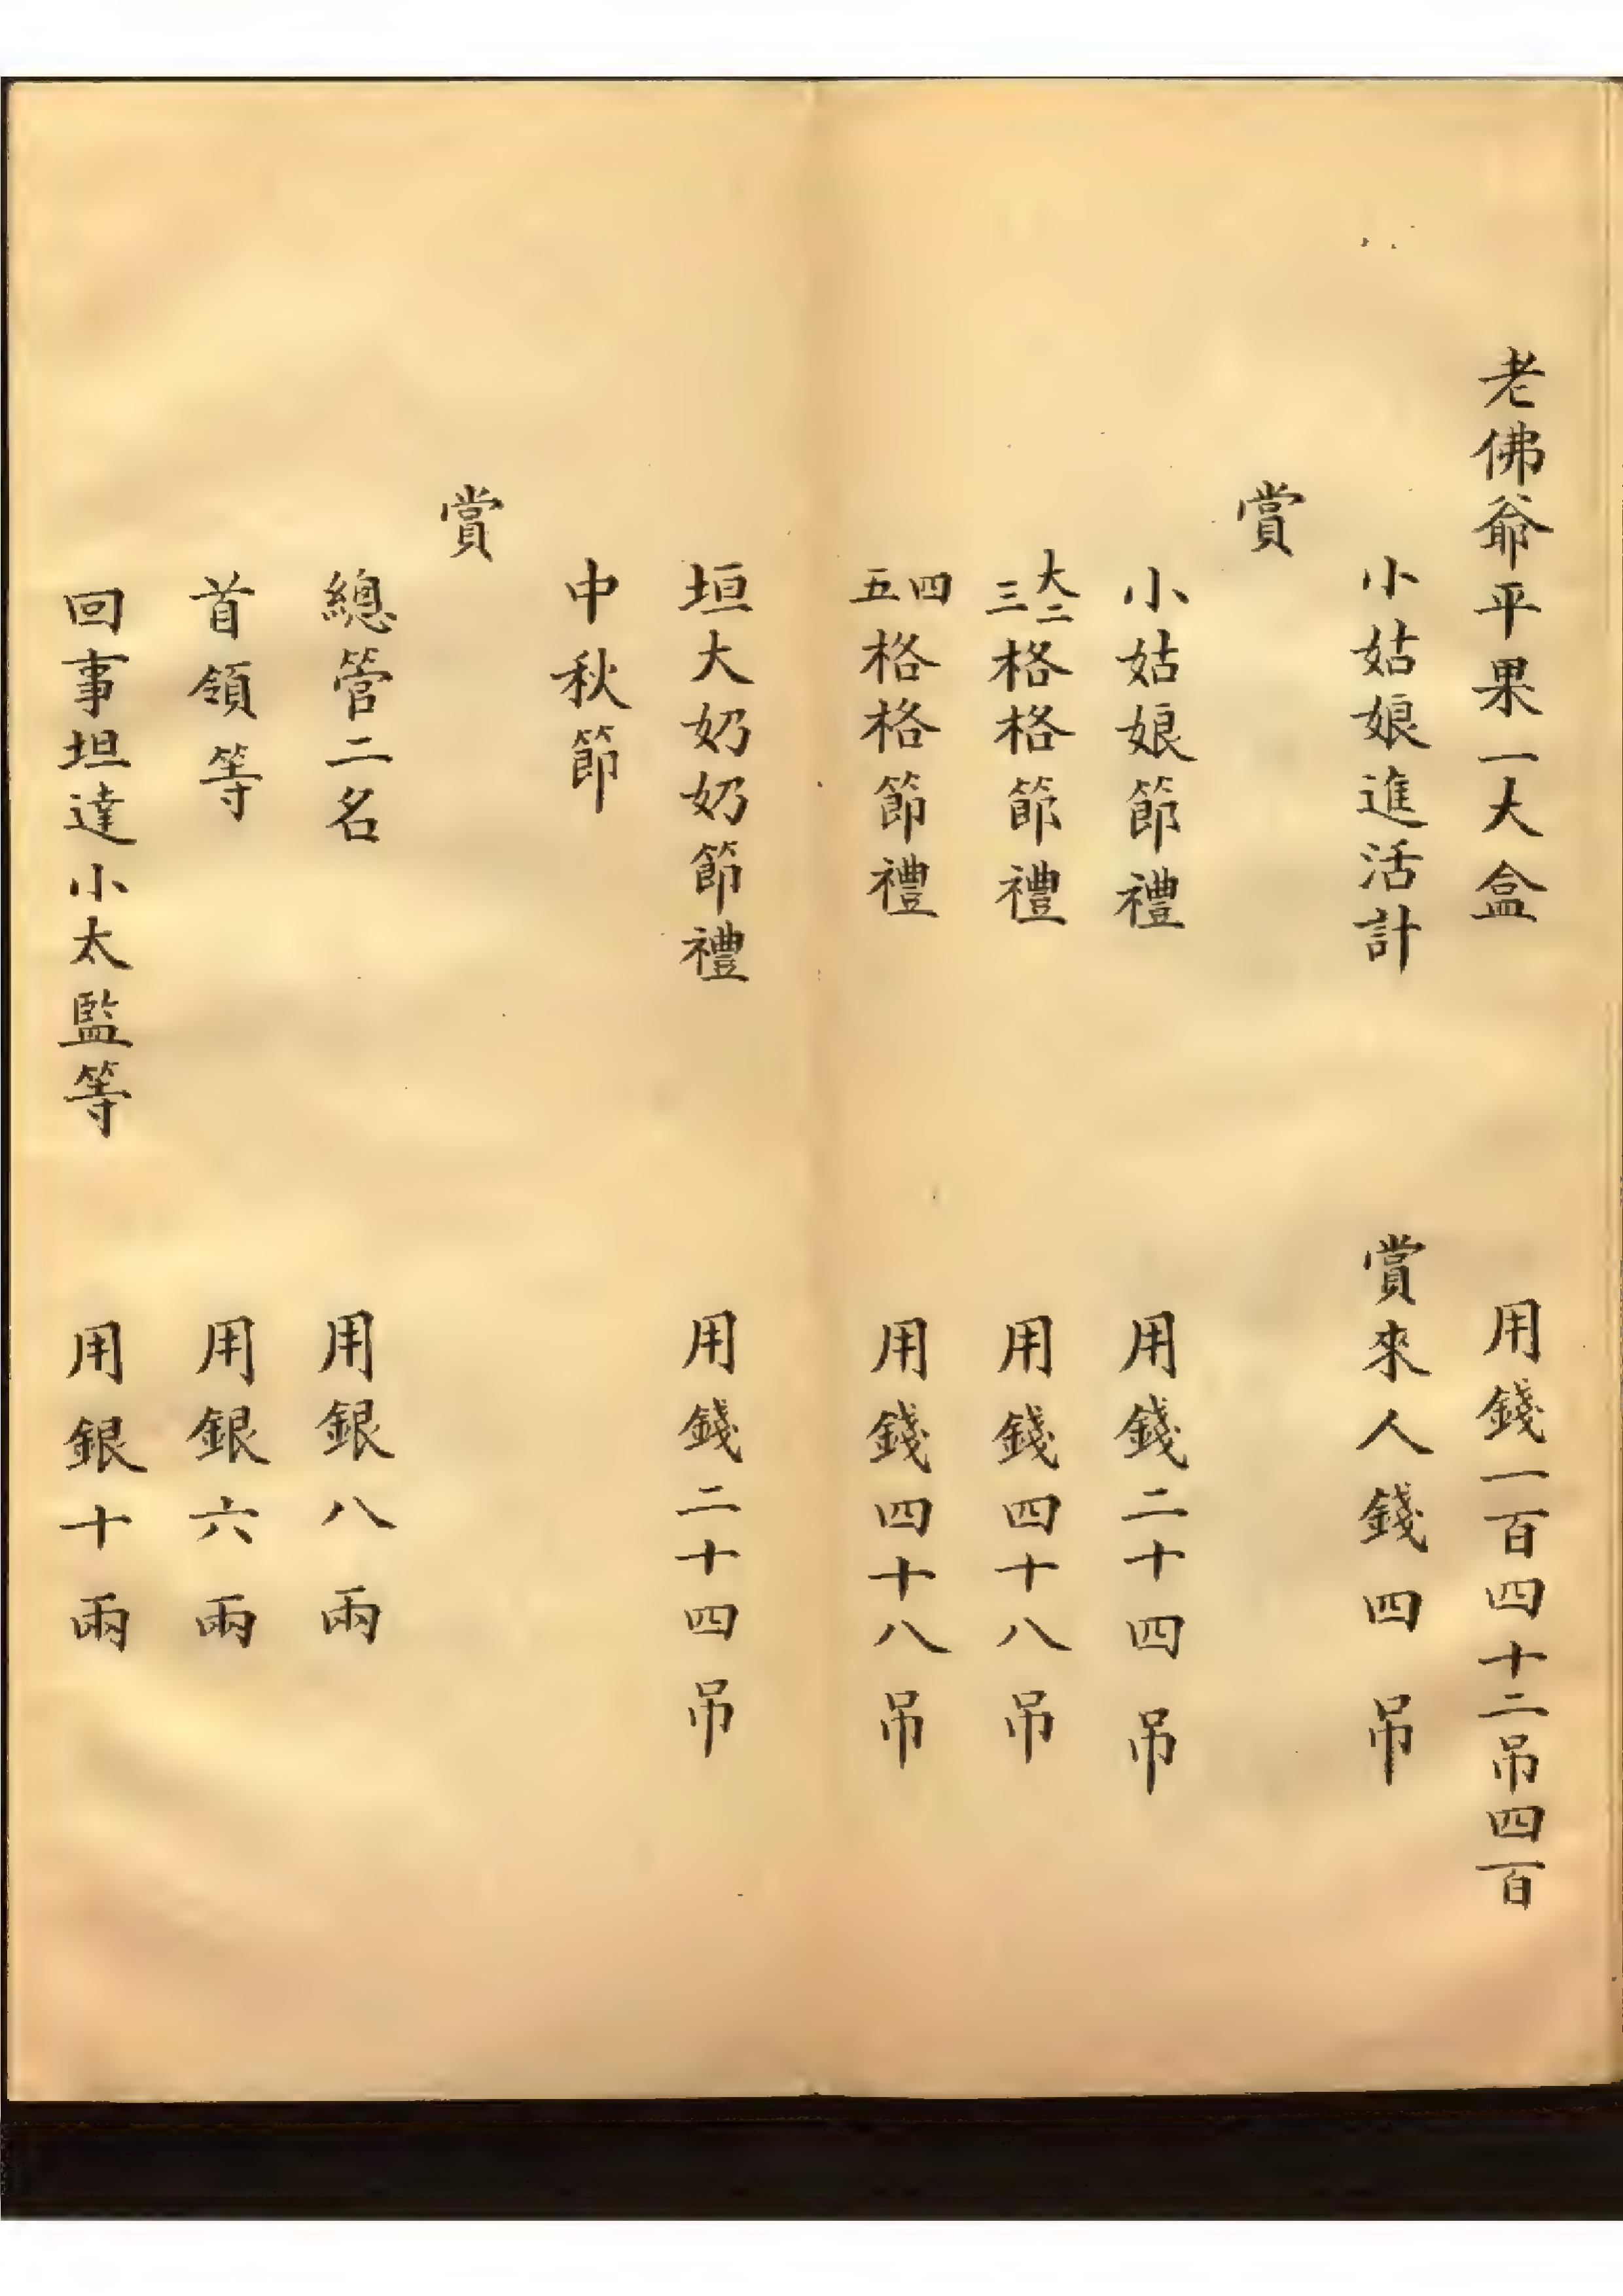 老佛爺平果一大盒 用錢一百四十二吊四百
小姑娘進活計 賞來人錢四吊
賞
小姑娘節禮 用錢二十四吊
大二三格格節禮 用錢四十八吊
四五格格節禮 用錢四十八吊
垣大奶奶節禮 用錢二十四吊
中秋節
賞
總管二名 用銀八兩
首領等 用銀六兩
回事坦達小太監等 用銀十兩